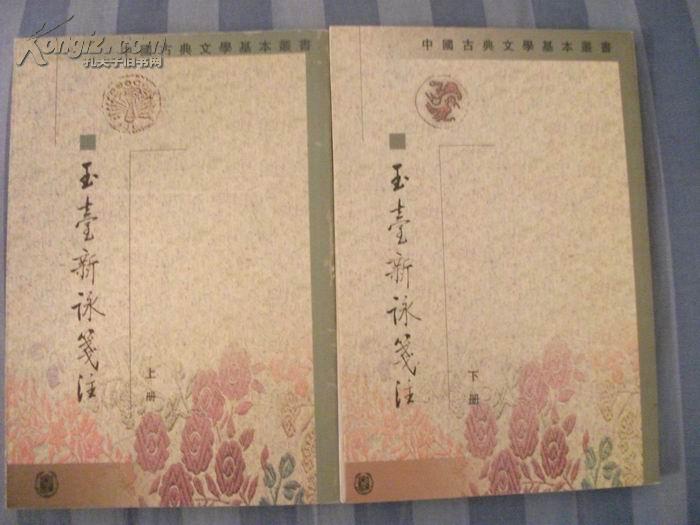 Kongfz.com
孔夫子旧书网
中國古典文學基本叢書
玉臺新詠箋注
上册
中國古典文學基本叢書
玉臺新詠箋注
下册